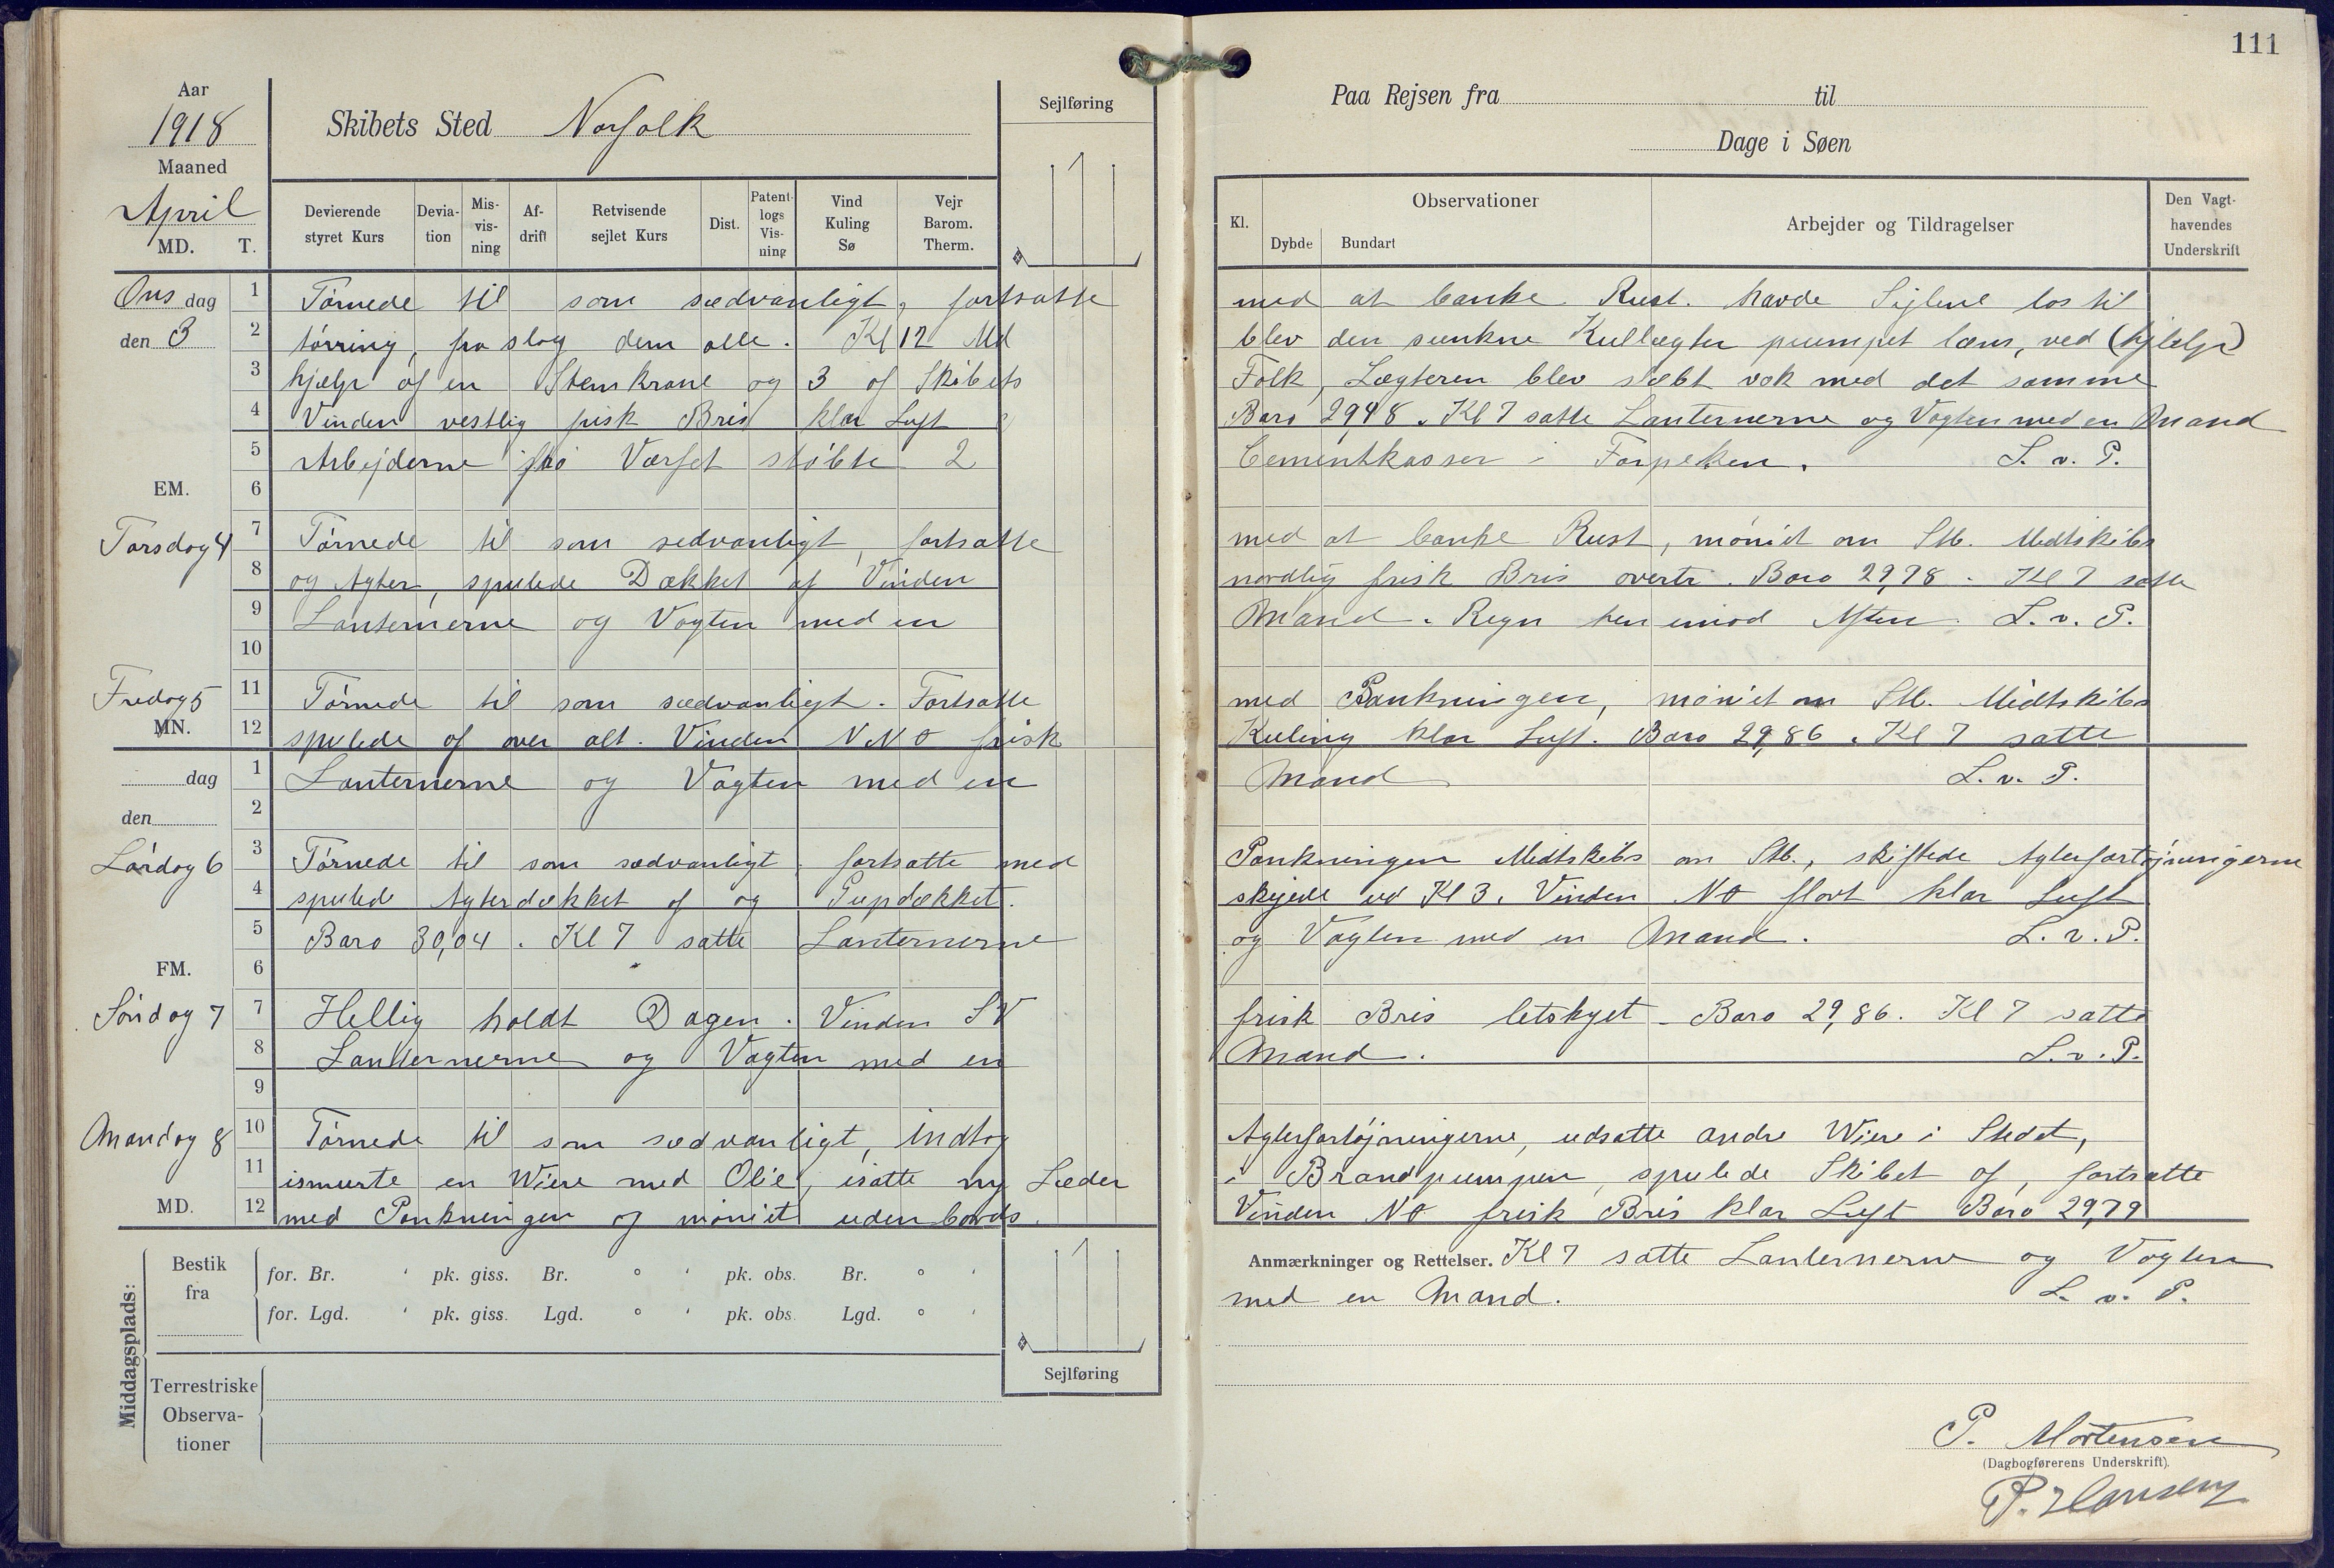 111
Aar
1918
Maaned
April
MD. T.
Skibets Sted Norfolk
Sejlføring
Devierende styret Kurs
Deviation
Misvisning
Afdrift
Retvisende sejlet Kurs
Dist.
Patentlogs Visning
Vind Kuling Sø
Vejr Barom. Therm.
Paa Rejsen fra til
Dage i Søen
Kl.
Observationer
Dybde Bundart
Arbejder og Tildragelser
Den Vagthavendes Underskrift
Onsdag
den 3
1 Tørnede til som sædvanligt, fortsatte med at banke Rust. havde Sejlene los til
2 tørring, fra slog dem alle. Kl 12 Md blev den sunkne Kullægter pumpet læns, ved (hjælp)
3 hjælp af en Stemkrane og 3 af Skibets Folk, Lægteren blev slæbt væk med det samme
4 Vinden vestlig frisk Bris klar Luft Baro 29,48. Kl 7 satte Lanternerne og Vagten med en Mand
5 Arbejderne fra Værfet støbte 2 Cementkasser i Forpeken. L. v. P.
EM. 6
Torsdag 4
7 Tørnede til som sædvanligt, fortsatte med at banke Rust, møniet om Stb. Midtskibs
8 og Agter, spulede Dækket af Vinden nordlig frisk Bris overtr. Baro 29,78. Kl 7 satte
9 Lanternerne og Vagten med en Mand. Regn hen imod Aften. L. v. P.
10
Fredag 5
11 Tørnede til som sædvanligt. Fortsatte med Bankningen, møniet om Stb. Midtskibs
MN. 12 spulede af over alt. Vinden NNO frisk Kuling klar Luft. Baro 29,86. Kl 7 satte
dag 1 Lanternerne og Vagten med en Mand L. v. P.
den 2
Lørdag 6
3 Tørnede til som sædvanligt, fortsatte med Bankningen Midtskibs om Stb., skiftede Agterfortøjningerne
4 spulede Agterdækket af og Pupdækket. skejede ud Kl 3. Vinden NO flovt klar Luft
5 Baro 30,04. Kl 7 satte Lanternerne og Vagten med en Mand. L. v. P.
FM. 6
Søndag 7
7 Hellig holdt Dagen. Vinden SV frisk Bris letskyet - Baro 29,86. Kl 7 satte
8 Lanternerne og Vagten med en Mand. L. v. P.
9
Mandag 8
10 Tørnede til som sædvanligt, indtog Agterfortøjningerne, udsatte andre Wire i Stedet,
11 ismurte en Wire med Olie, isatte ny Læder i Brandpumpen, spulede Skibet af, fortsatte
MD. 12 med Bankningen og møniet udenbords. Vinden NO frisk Bris klar Luft Baro 29,79
Anmærkninger og Rettelser. Kl 7 satte Lanternerne og Vagten
med en Mand. L. v. P.
Middagsplads:
Bestik fra
for. Br. ' pk. giss. Br. ° ' pk. obs. Br. ° '
for. Lgd. ' pk. giss. Lgd. ° ' pk. obs. Lgd. ° '
Sejlføring
Terrestriske Observationer
P. Mortensen
(Dagbogførerens Underskrift).
P. Hansen